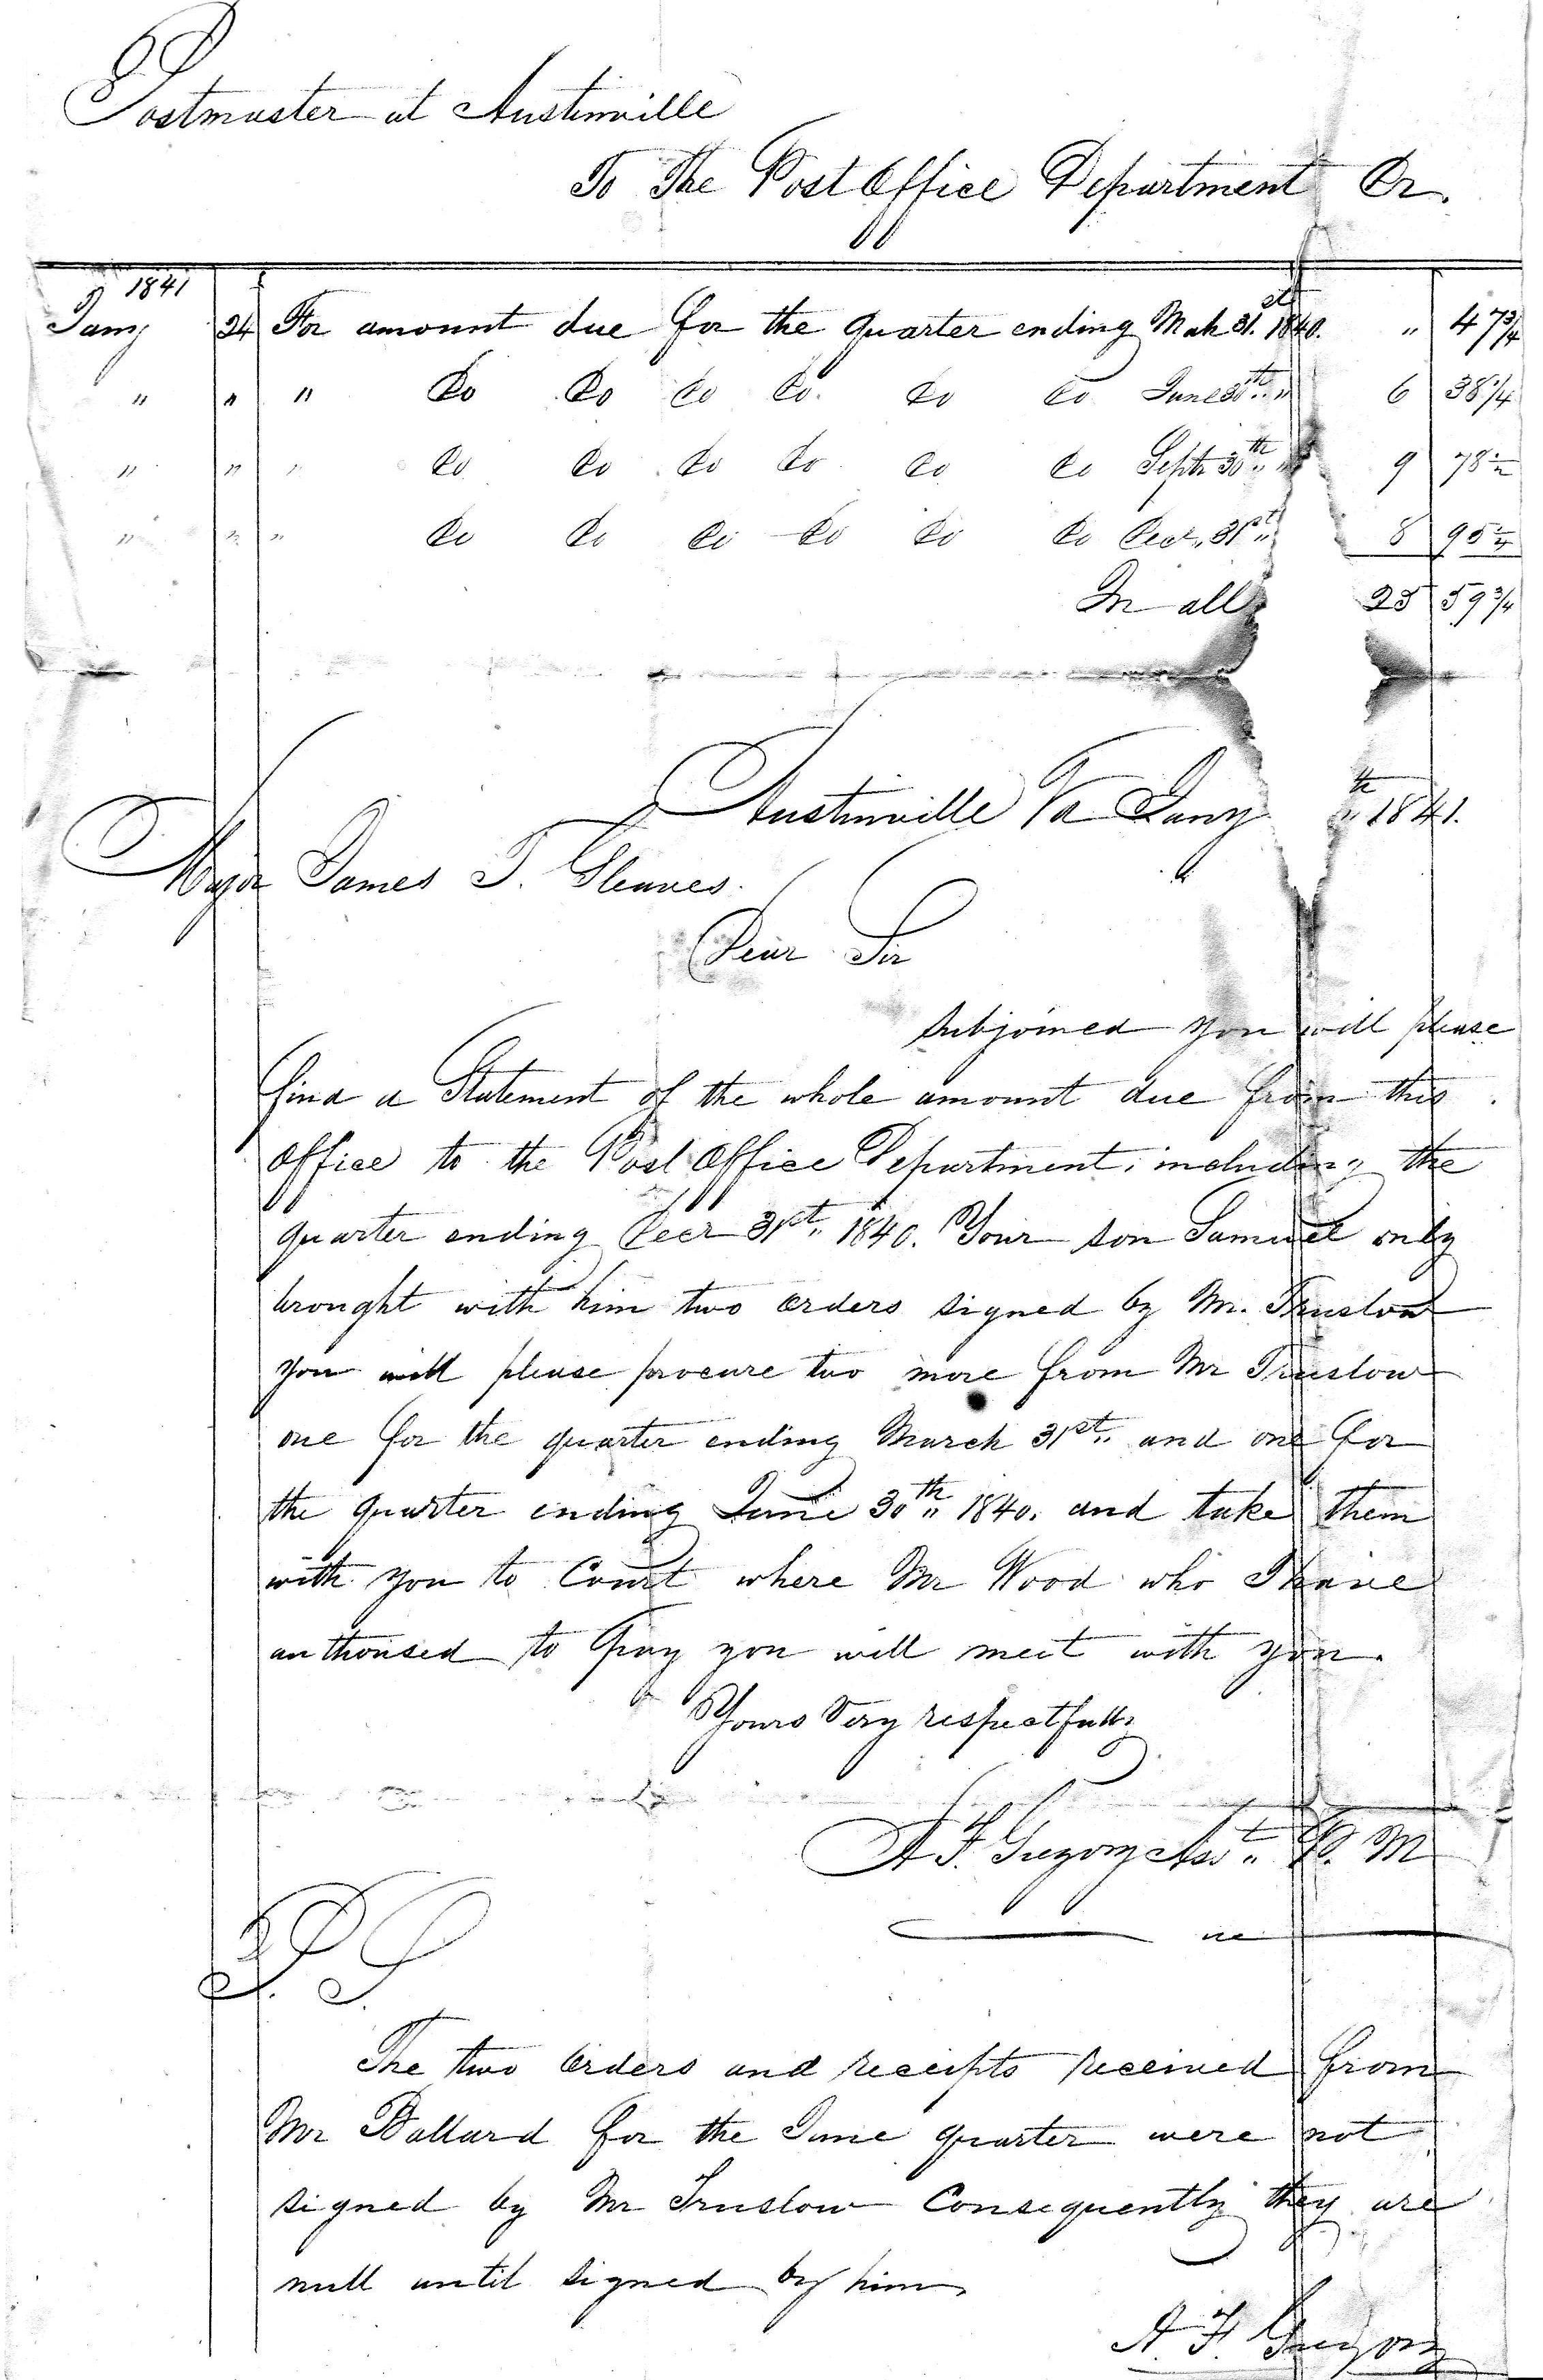 Postmaster at Austinville
To The Post Office Department Dr.
1841
Jany 24 For amount due for the quarter ending Mah 31st 1840. " 47 3/4
" " " Do Do Do Do. Do Do June 30th " 6 38 1/4
" " " Do Do Do Do Do Do Septr 30th " 9 78 1/2
" " " Do Do Do Do Do Do Decr. 31st " 8 95 1/4
In all 25 59 3/4
Austinville Va Jany th " 1841.
Major James T. Gleaves.
Dear Sir
Subjoined you will please
find a Statement of the whole amount due from this
office to the Post Office Department, including the
quarter ending Decr 31st " 1840. Your son Samuel only
brought with him two orders signed by Mr. Truslow
you will please procure two more from Mr Truslow
one for the quarter ending March 31st " and one for
the quarter ending June 30th " 1840. and take them
with you to Court where Mr Wood who I have
authorised to pay you will meet with you.
Yours Very respectfully
A F. Gregory Asst " P. M
P. S.
The two orders and receipts received from
Mr Ballard for the June quarter were not
signed by Mr Truslow Consequently they are
null until signed by him
A. F. Gregory